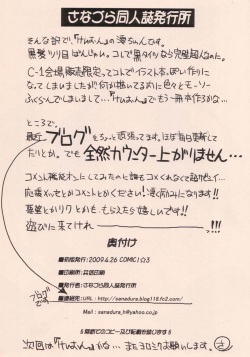 さなづら同人誌発行所
そんな訳で、「けいおん」の澪ちゃんです。
黒髪ツリ目ばんじゃい。コレで黒タイツなら完璧超人なのに。
C-1会場販売限定ってコトでイラスト本っぽい作りに
なってしまいましたが何か描いてるまに色々とモーソー
ふくらんでしまいまして…「けいおん」でもう一冊本作るかな…
ところで、
最近ブログをちょっと頑張ってます。ほぼ毎日更新して
たりとか。でも全然カウンター上がりません…
応援メールとかコメントとかください!凄く励みになります!!
遊びに来てけれーーー!!!
奥付け
■初版発行:2009.4.26 COMIC1☆3
■発行者:さなづら同人誌発行所
■連絡先:URL:http://sanadura.blog118.fc2.com/
Mail:sanadura_h@yahoo.co.jp
ブログです
!!無断でのコピー及び転載を禁じます!!
次回は「けいおん」かな…またヨロシクお願いします。さ